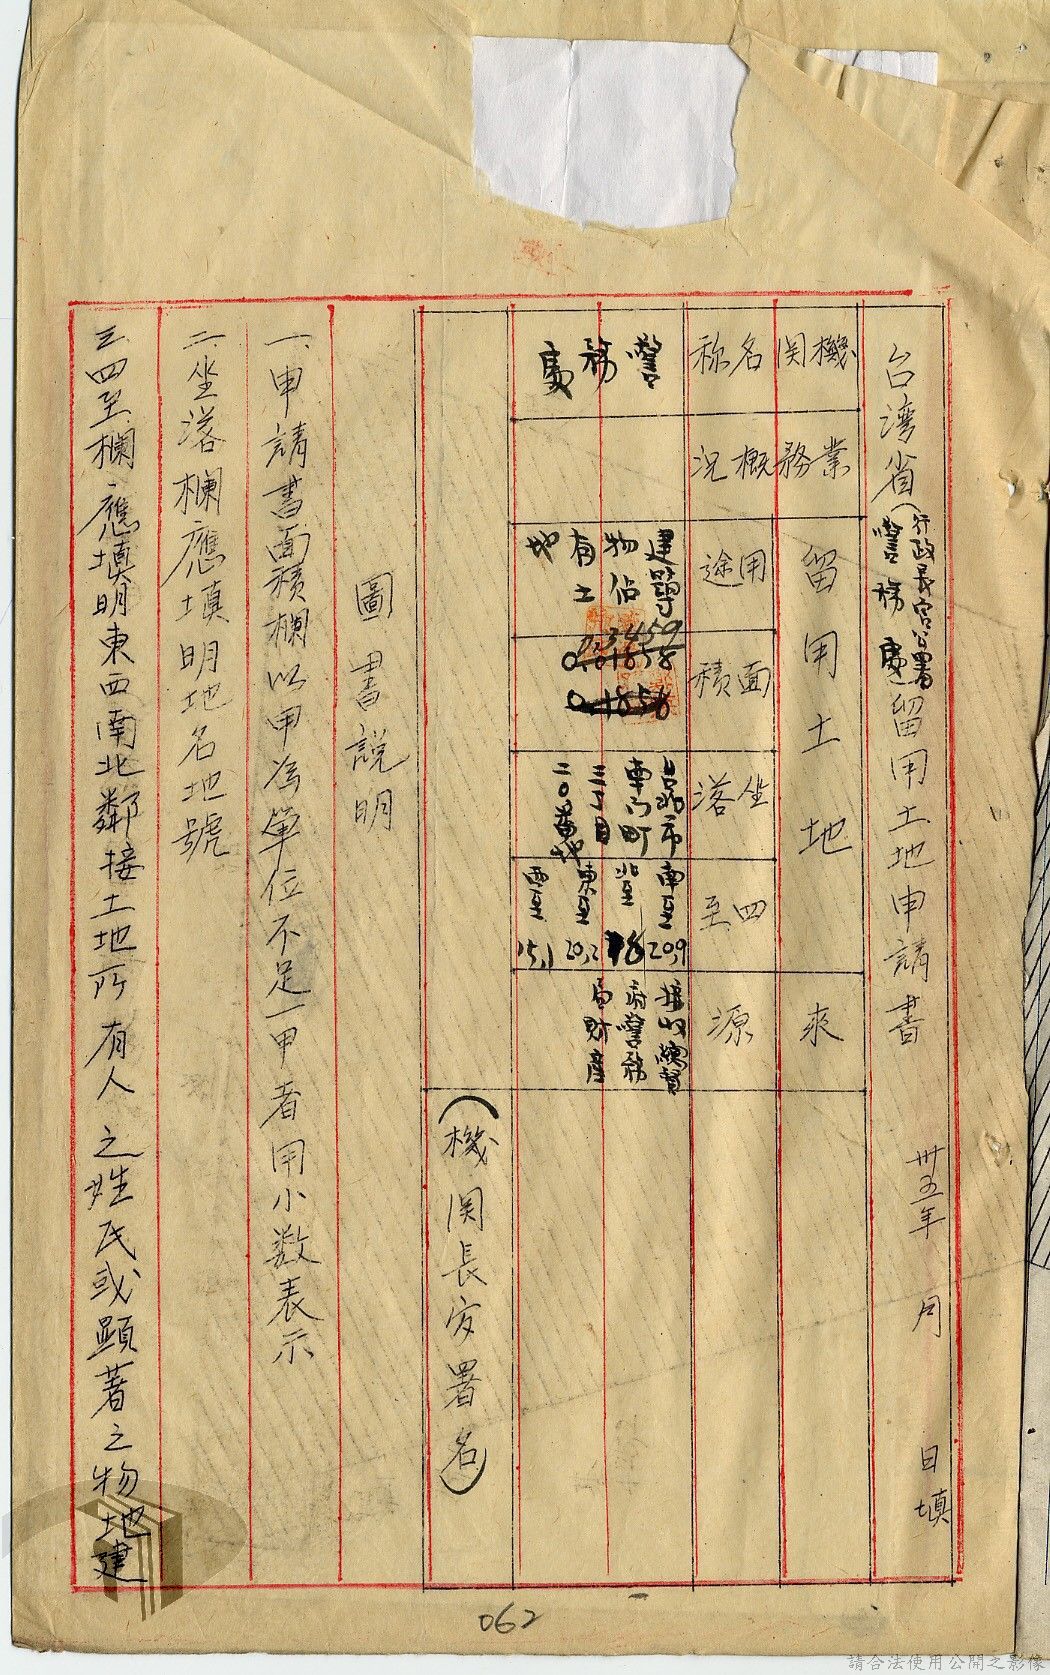 台湾省（行政長官公署警務處）留用土地申請書　卅五年　月　日填
機関名称
業務概況
留用土地
用途
面積
坐落
四至
来源
警務處
建築物佔有土地
0.3459
0.01858
0.1858
台北市
東门町
三丁目
二〇番地
南至 20,9
北至 18
東至 20,2
西至 15,1
接收總督府警務局財產
（機関長官署名）
圖書説明
一、申請書面積欄以甲為單位不足一甲者用小数表示
二、坐落欄應填明地名地號
三、四至欄應填明東西南北鄰接土地所有人之姓氏或顕著之物地建
062
請合法使用公開之影像